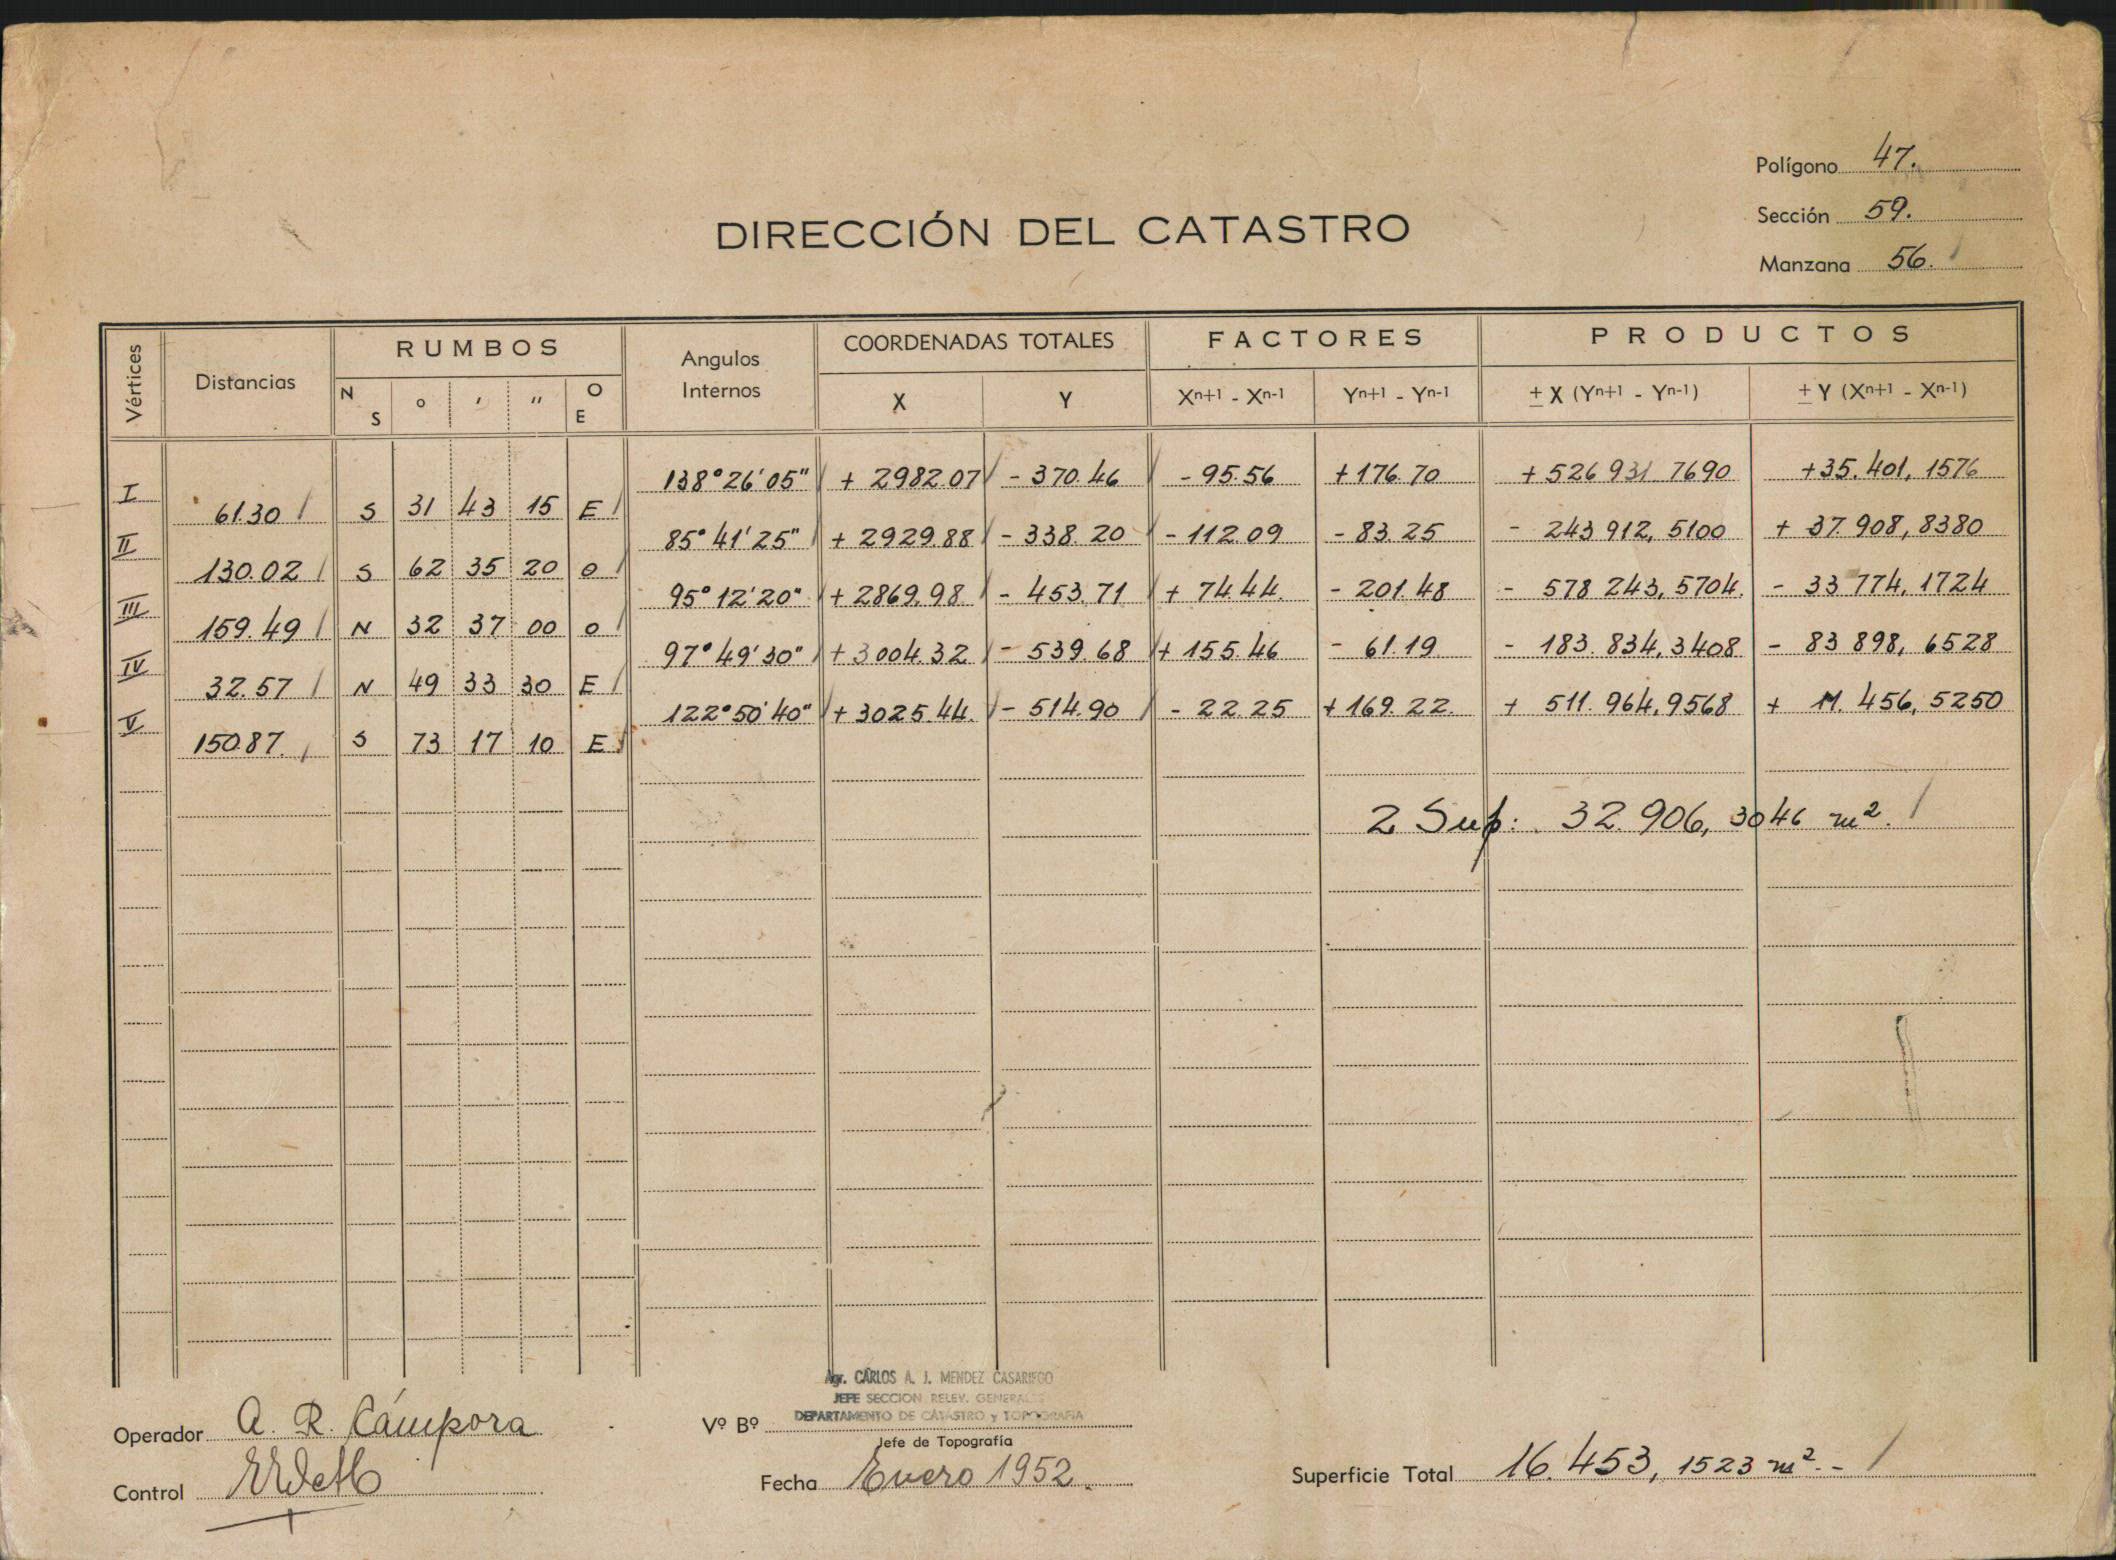 Polígono 47.
Sección 59.
Manzana 56.
DIRECCIÓN DEL CATASTRO
Vértices Distancias RUMBOS Angulos Internos COORDENADAS TOTALES FACTORES PRODUCTOS
N S ° ' " O E X Y Xn+1 - Xn-1 Yn+1 - Yn-1 ± X (Yn+1 - Yn-1) ± Y (Xn+1 - Xn-1)
I 138°26'05" + 2982.07 - 370.46 - 95.56 + 176.70 + 526 931 7690 + 35.401, 1576
61.30 S 31 43 15 E
II 85°41'25" + 2929.88 - 338.20 - 112.09 - 83.25 - 243 912, 5100 + 37.908, 8380
130.02 S 62 35 20 O
III 95°12'20" + 2869.98 - 453.71 + 74.44 - 201.48 - 578 243, 5704 - 33 774, 1724
159.49 N 32 37 00 O
IV 97°49'30" + 3004.32 - 539.68 + 155.46 - 61.19 - 183.834,3408 - 83 898, 6528
32.57 N 49 33 30 E
V 122°50'40" + 3025.44 - 514.90 - 22.25 + 169.22 + 511.964,9568 + 11.456, 5250
150.87 S 73 17 10 E
2 Sup: 32.906, 3046 m².
Agr. CARLOS A. J. MENDEZ CASARIEGO
JEFE SECCION RELEV. GENERALES
DEPARTAMENTO DE CATASTRO y TOPOGRAFIA
Operador A. R. Cámpora Vº Bº
Jefe de Topografía
Control Fecha Enero 1952. Superficie Total 16.453, 1523 m².-